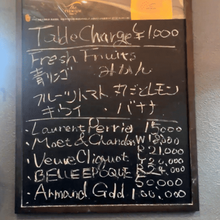 Table Charge ¥1,000
Fresh Fruits
青リンゴ みかん
フルーツトマト まるごとレモン
キウイ バナナ
・Laurent Perrier 15,000
・Moet & Chandon ¥18,000
・Veuve Cliquot ¥21,000
・BELLE EPOQUE
・Armand Gold 100,000